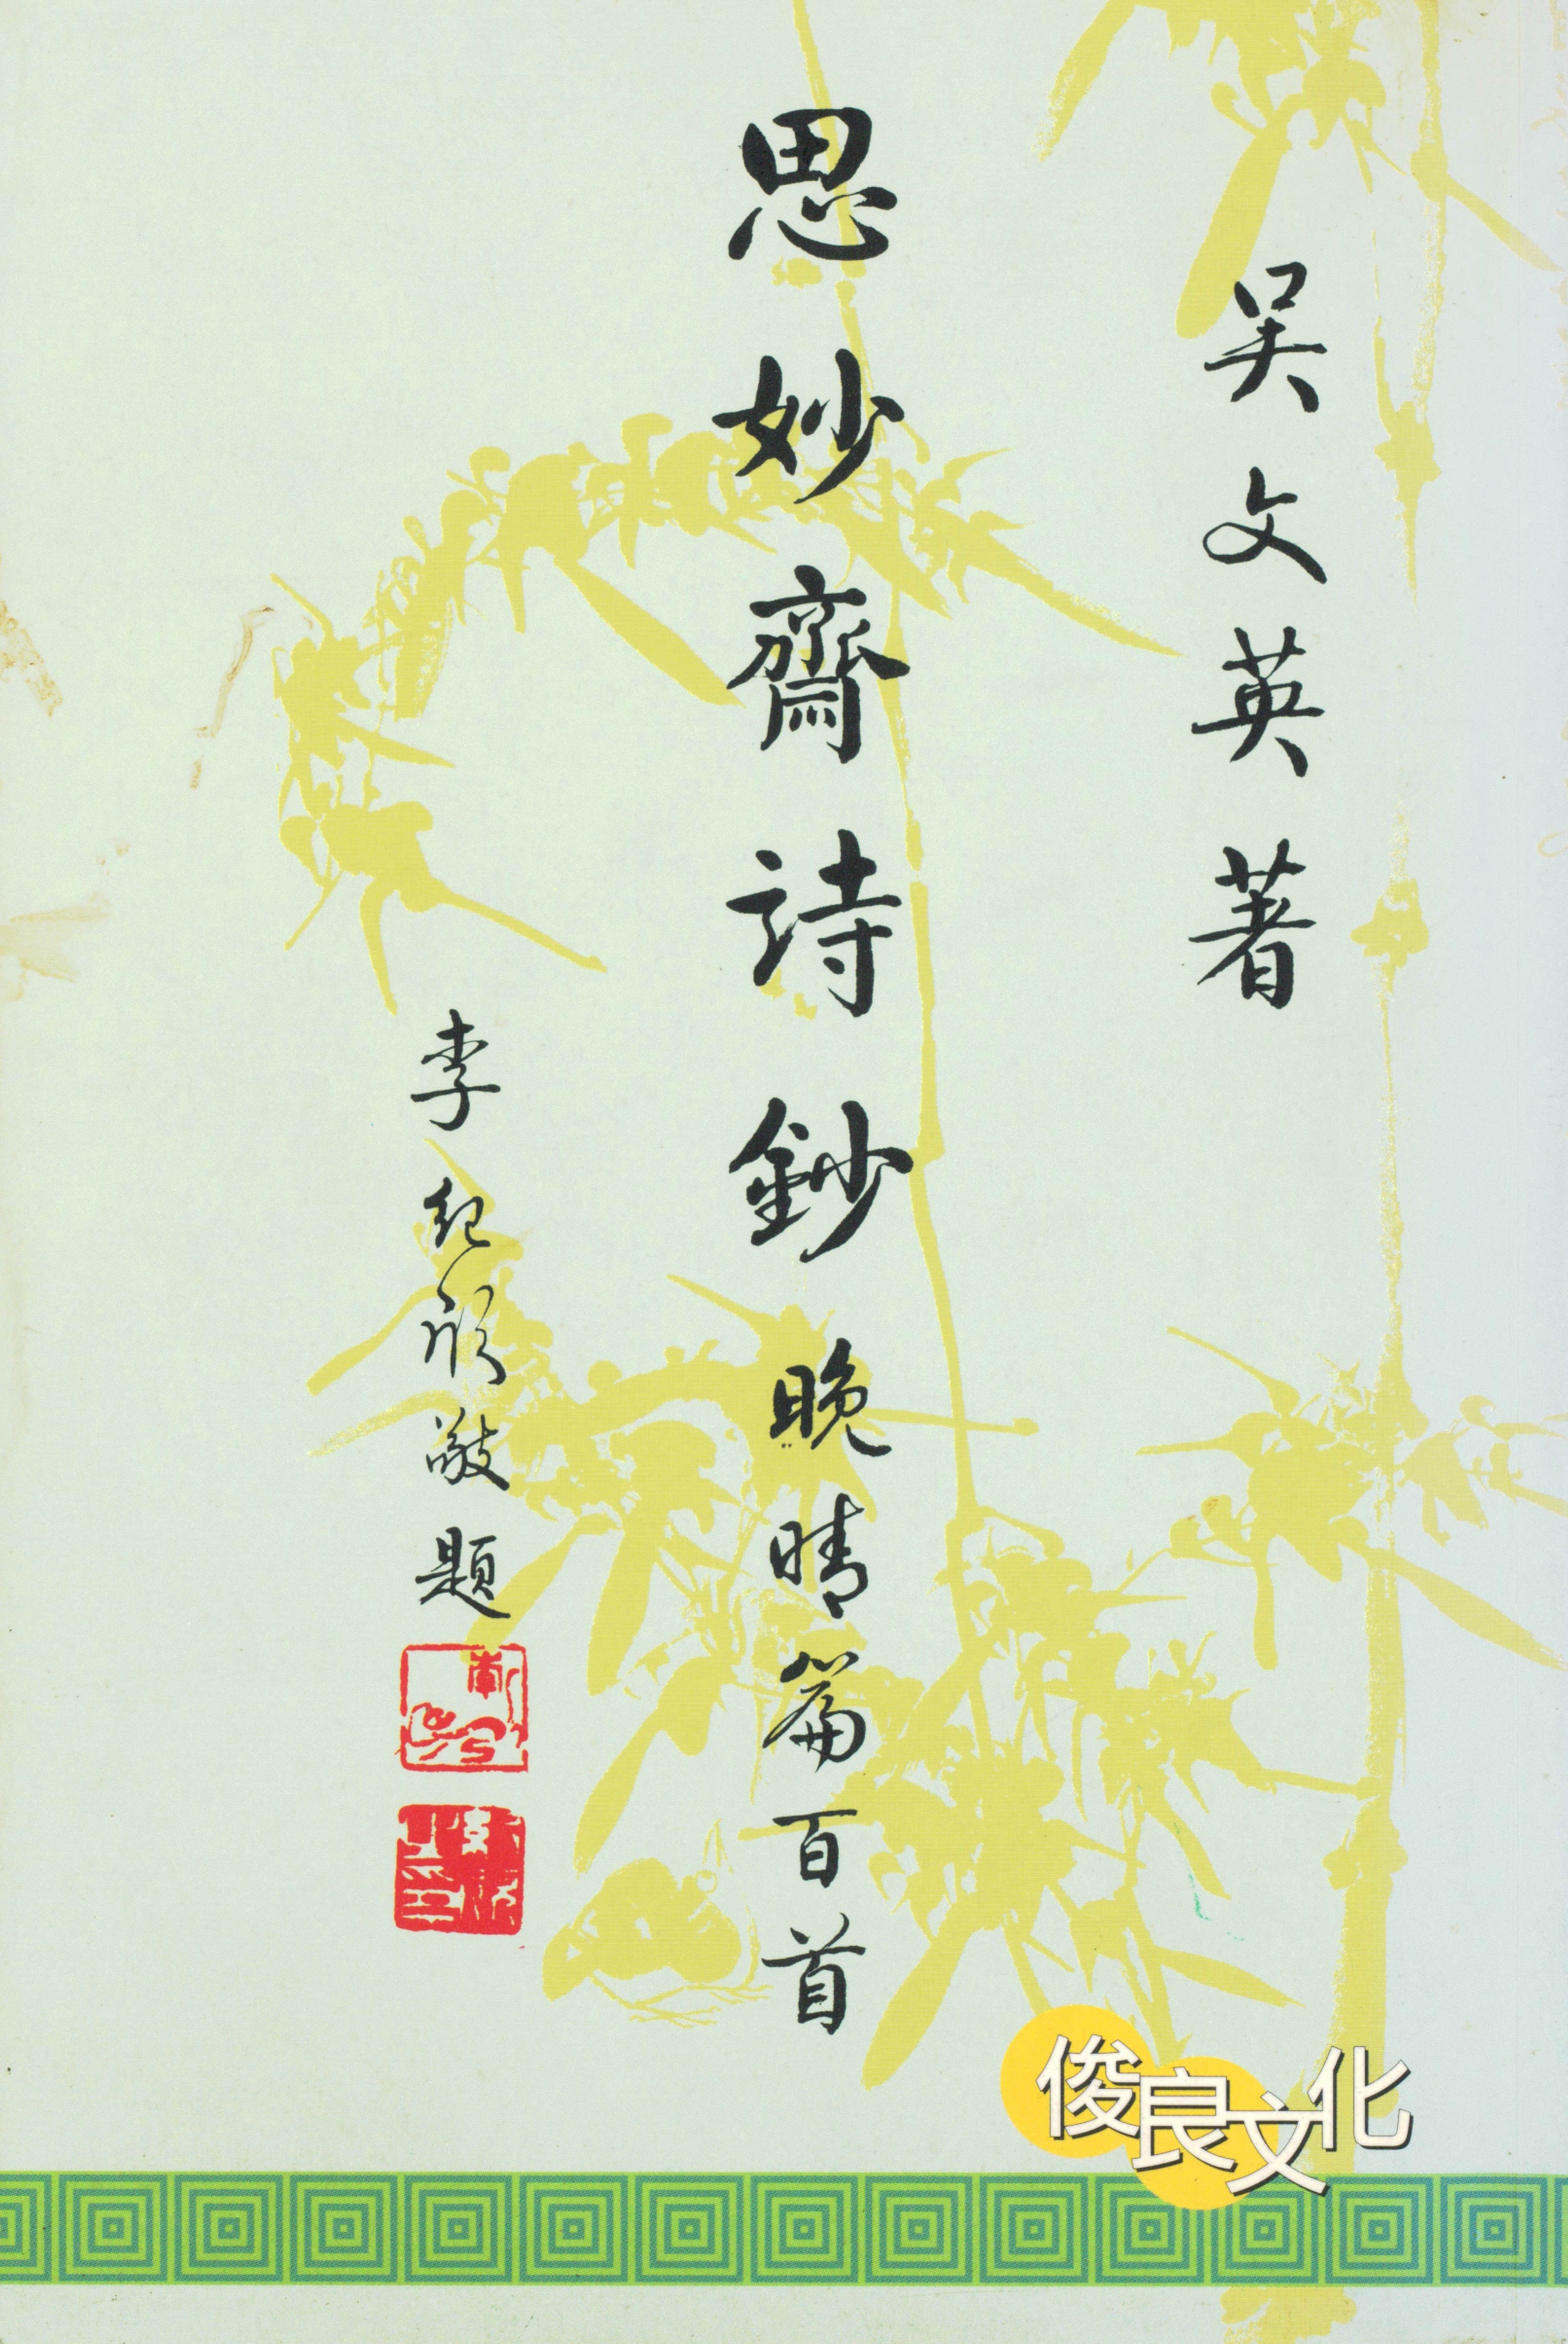 吴文英著
思妙齋詩鈔 晚晴篇百首
李紀欣敬題
俊良文化